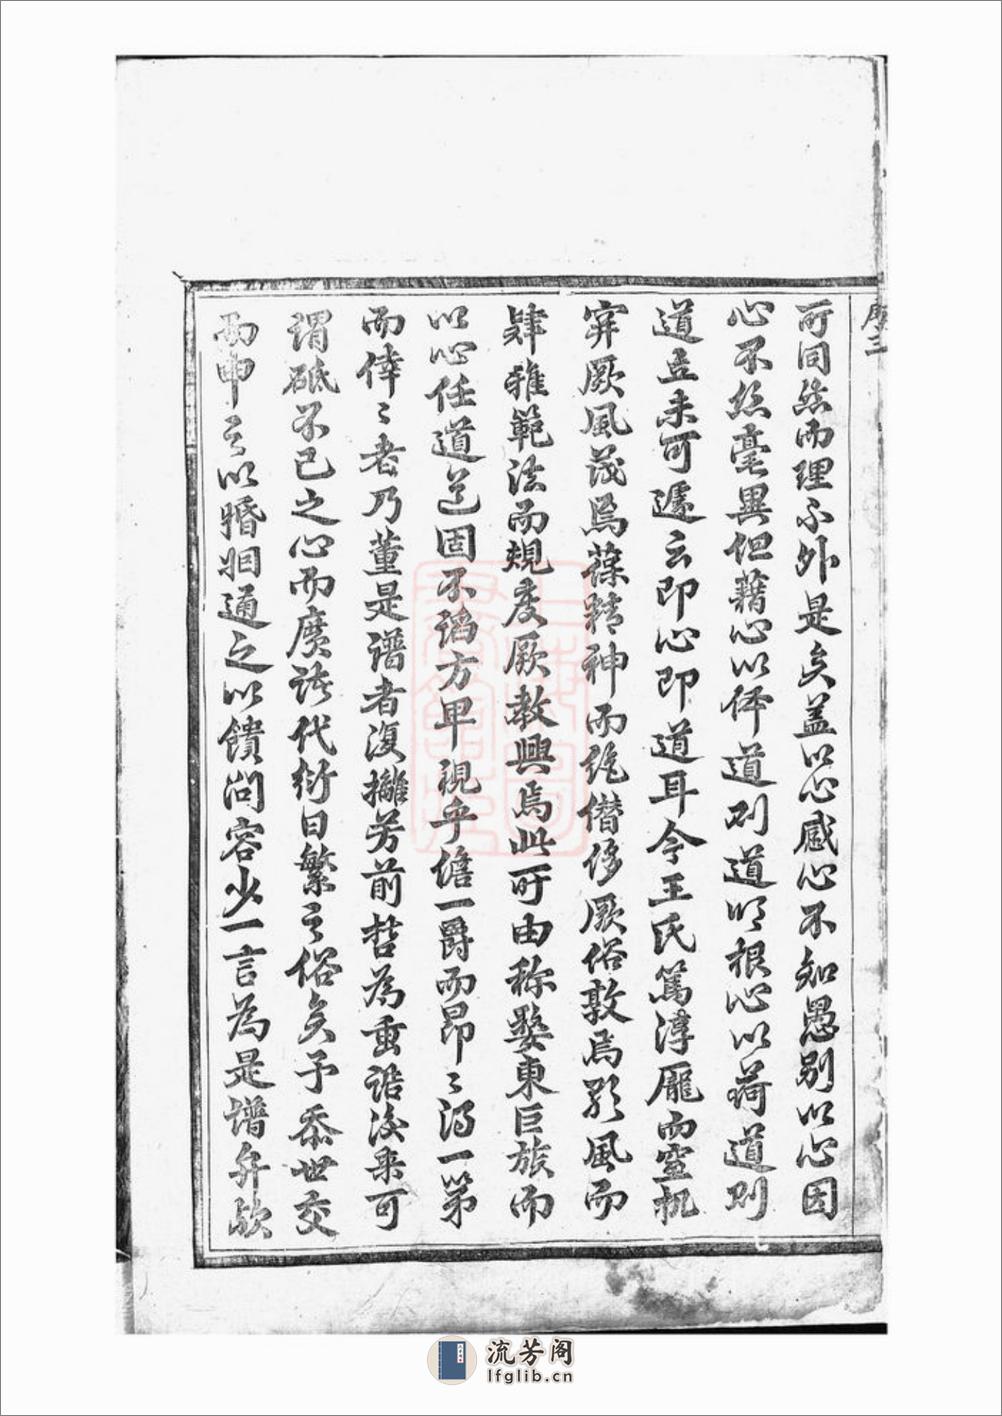 序三
所同然而理不外是矣蓋以心感心不知愚别以心因
心不終毫異但藉心以体道則道明根心以荷道則
道立未可遽云即心即道耳今王氏篤淳龐而窒机
穽厥風茂焉葆精神而絶僣侈厥俗敦焉影風而
肄雅範法而規度厥教興焉此可由称婺東巨族而
以心任道邑固不謟方甲視乎儋一爵而昂〻得一第
而倖〻者乃董是譜者復摛芳前哲為垂誥後来可
謂砥不已之心而廣諸代衍日繁之俗矣予忝世交
而申之以婚姻通之以饋問容少一言為是譜弁欤
流芳阁
lfglib.cn